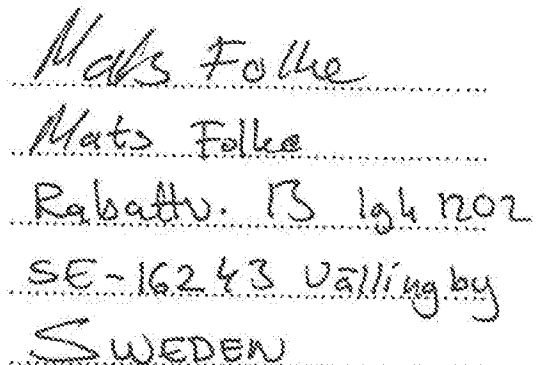 Mats Folke
Mats Folke
Rabattv. 13 lgh 1202
SE-16243 Vällingby
SWEDEN